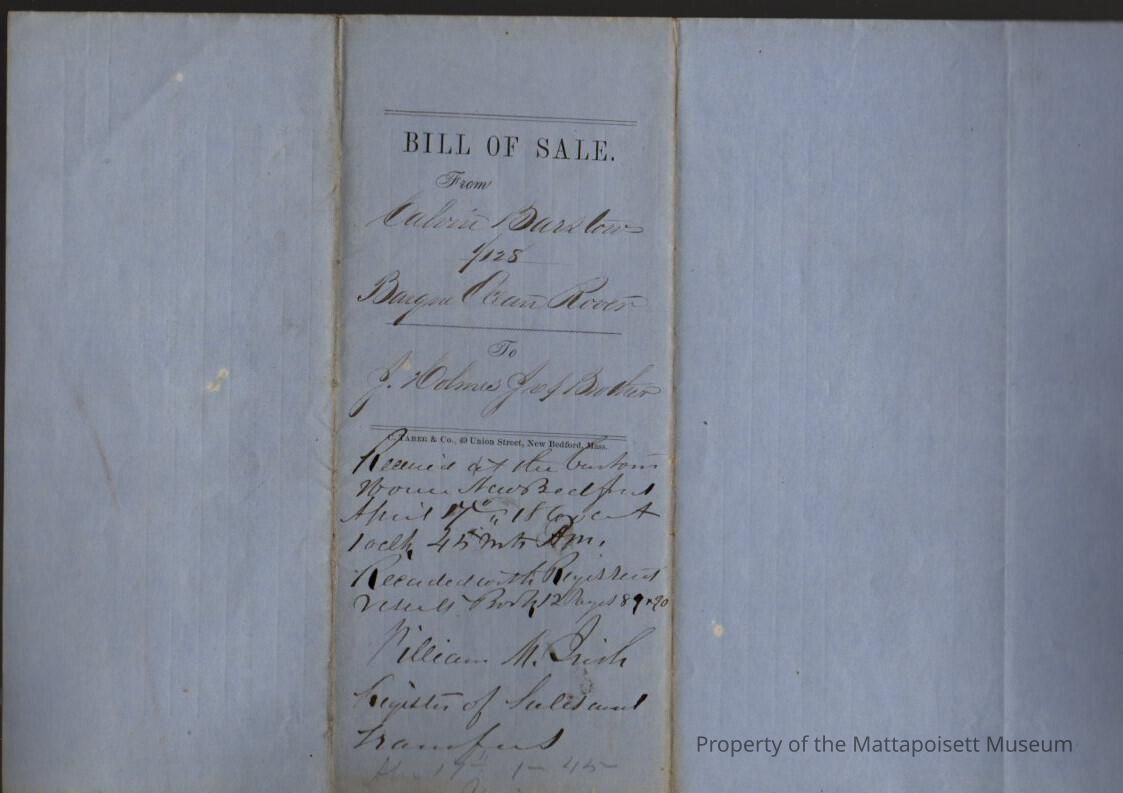 BILL OF SALE.
From
Calvin Barstow
1/128
Barque Ocean Rover
To
J. Holmes Jr & Brother
C. TABER & Co., 49 Union Street, New Bedford, Mass.
Received at the Custom
House New Bedford
April 17" at
1 oclk 45 mts Pm.
Recorded with Registered
Vessels Book 12 Pages 89 & 90
William M. Irish
Register of Sales and
Transfers
17 1 - 45
Property of the Mattapoisett Museum